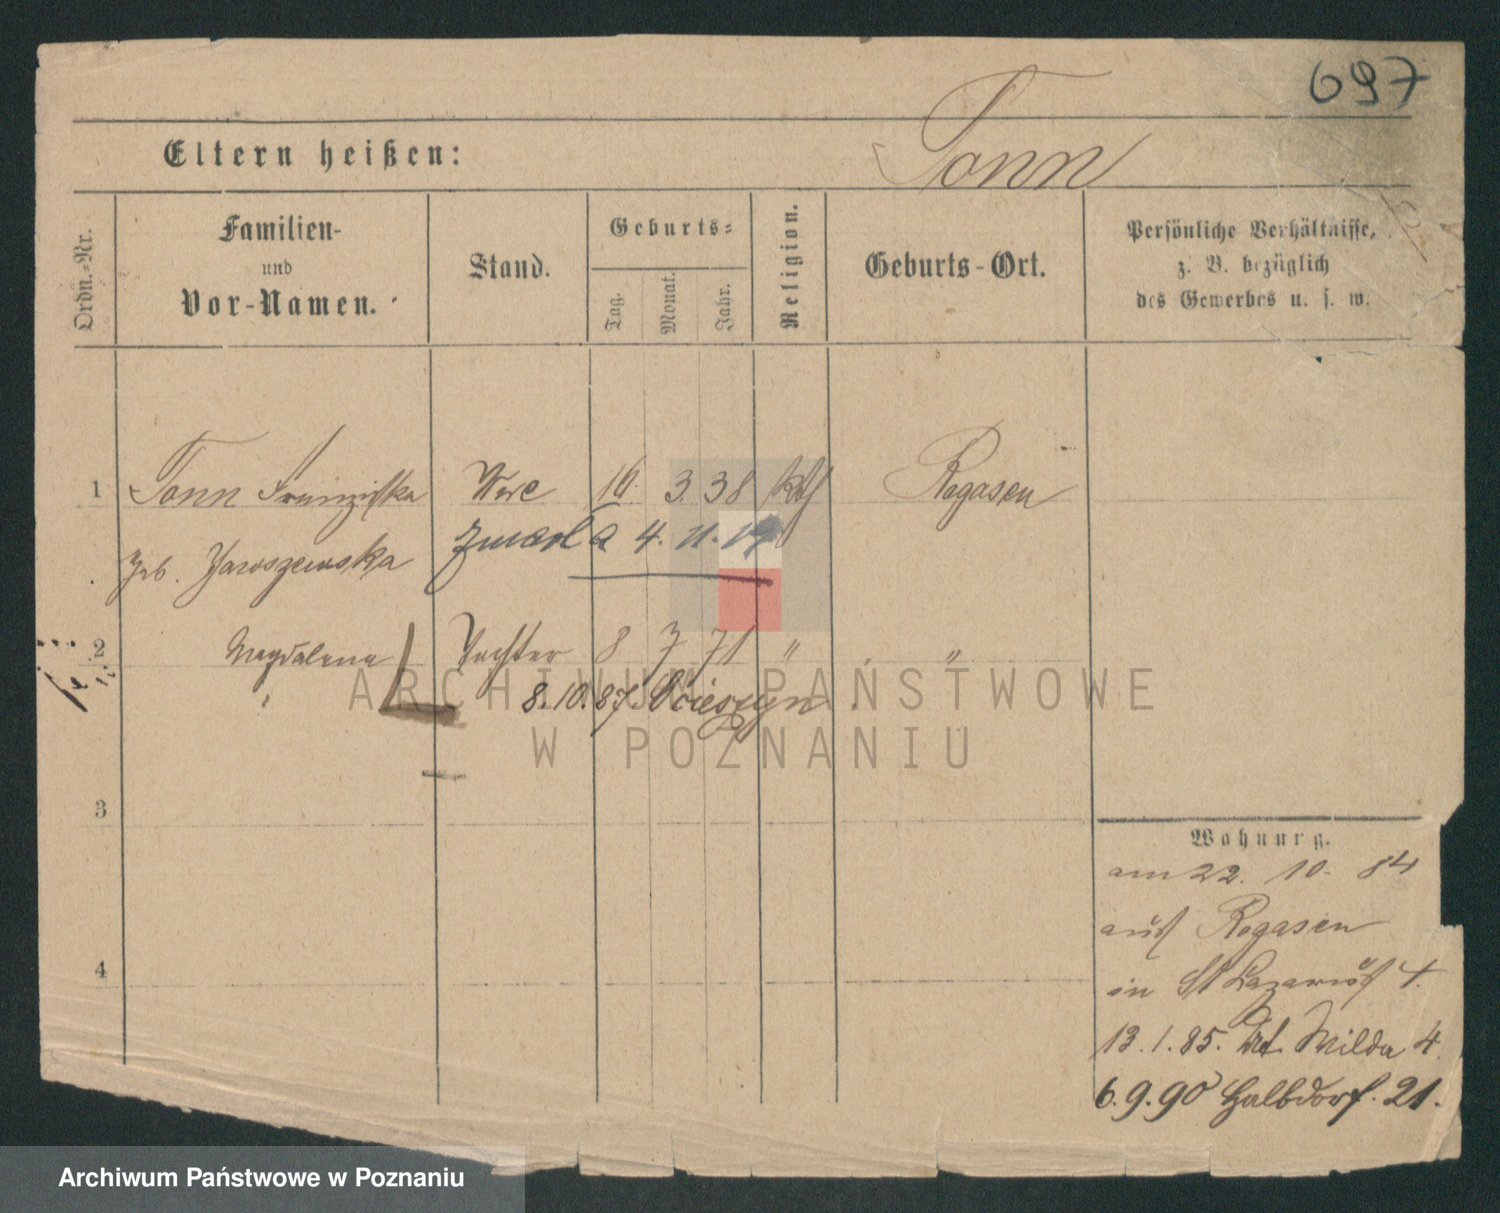 697
Eltern heißen: Tonn
Ordn.-Nr.
Familien-
und
Vor-Namen.
Stand.
Geburts-
Tag. Monat. Jahr.
Religion.
Geburts-Ort.
Persönliche Verhältnisse,
z. B. bezüglich
des Gewerbes u. s. w.
1 Tonn Franziska Wwe 3 38 kth Rogasen
geb. Jaroszewska zmarła 4. 11. 19
2 Magdalena Tochter 8 7 71 " "
8.10.87.
3
4
Wohnung.
am 22. 10. 84
aus Rogasen
in St Lazarus 4.
13.1.85. Wilda 4.
6.9.90 Halbdorf. 21.
ARCHIWUM PAŃSTWOWE
W POZNANIU
Archiwum Państwowe w Poznaniu